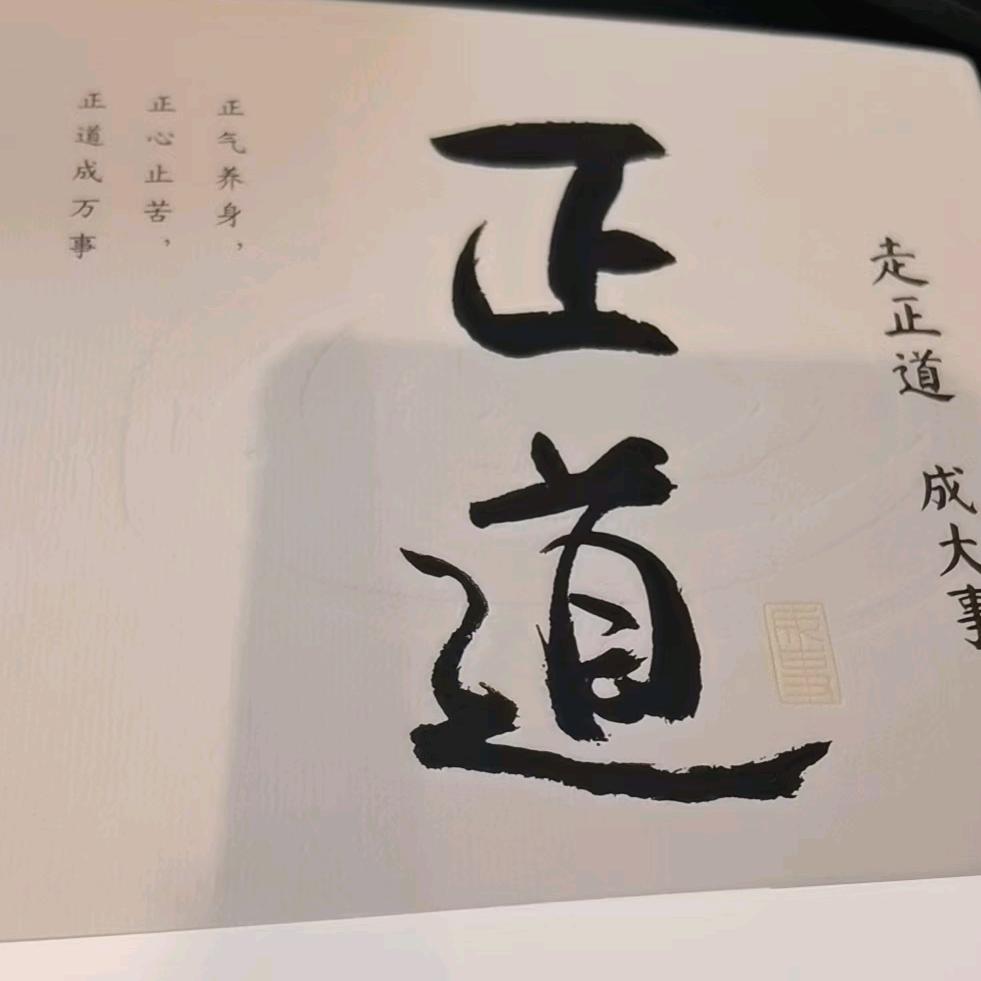 走正道 成大事
正道
成事
正气养身，
正心止苦，
正道成万事